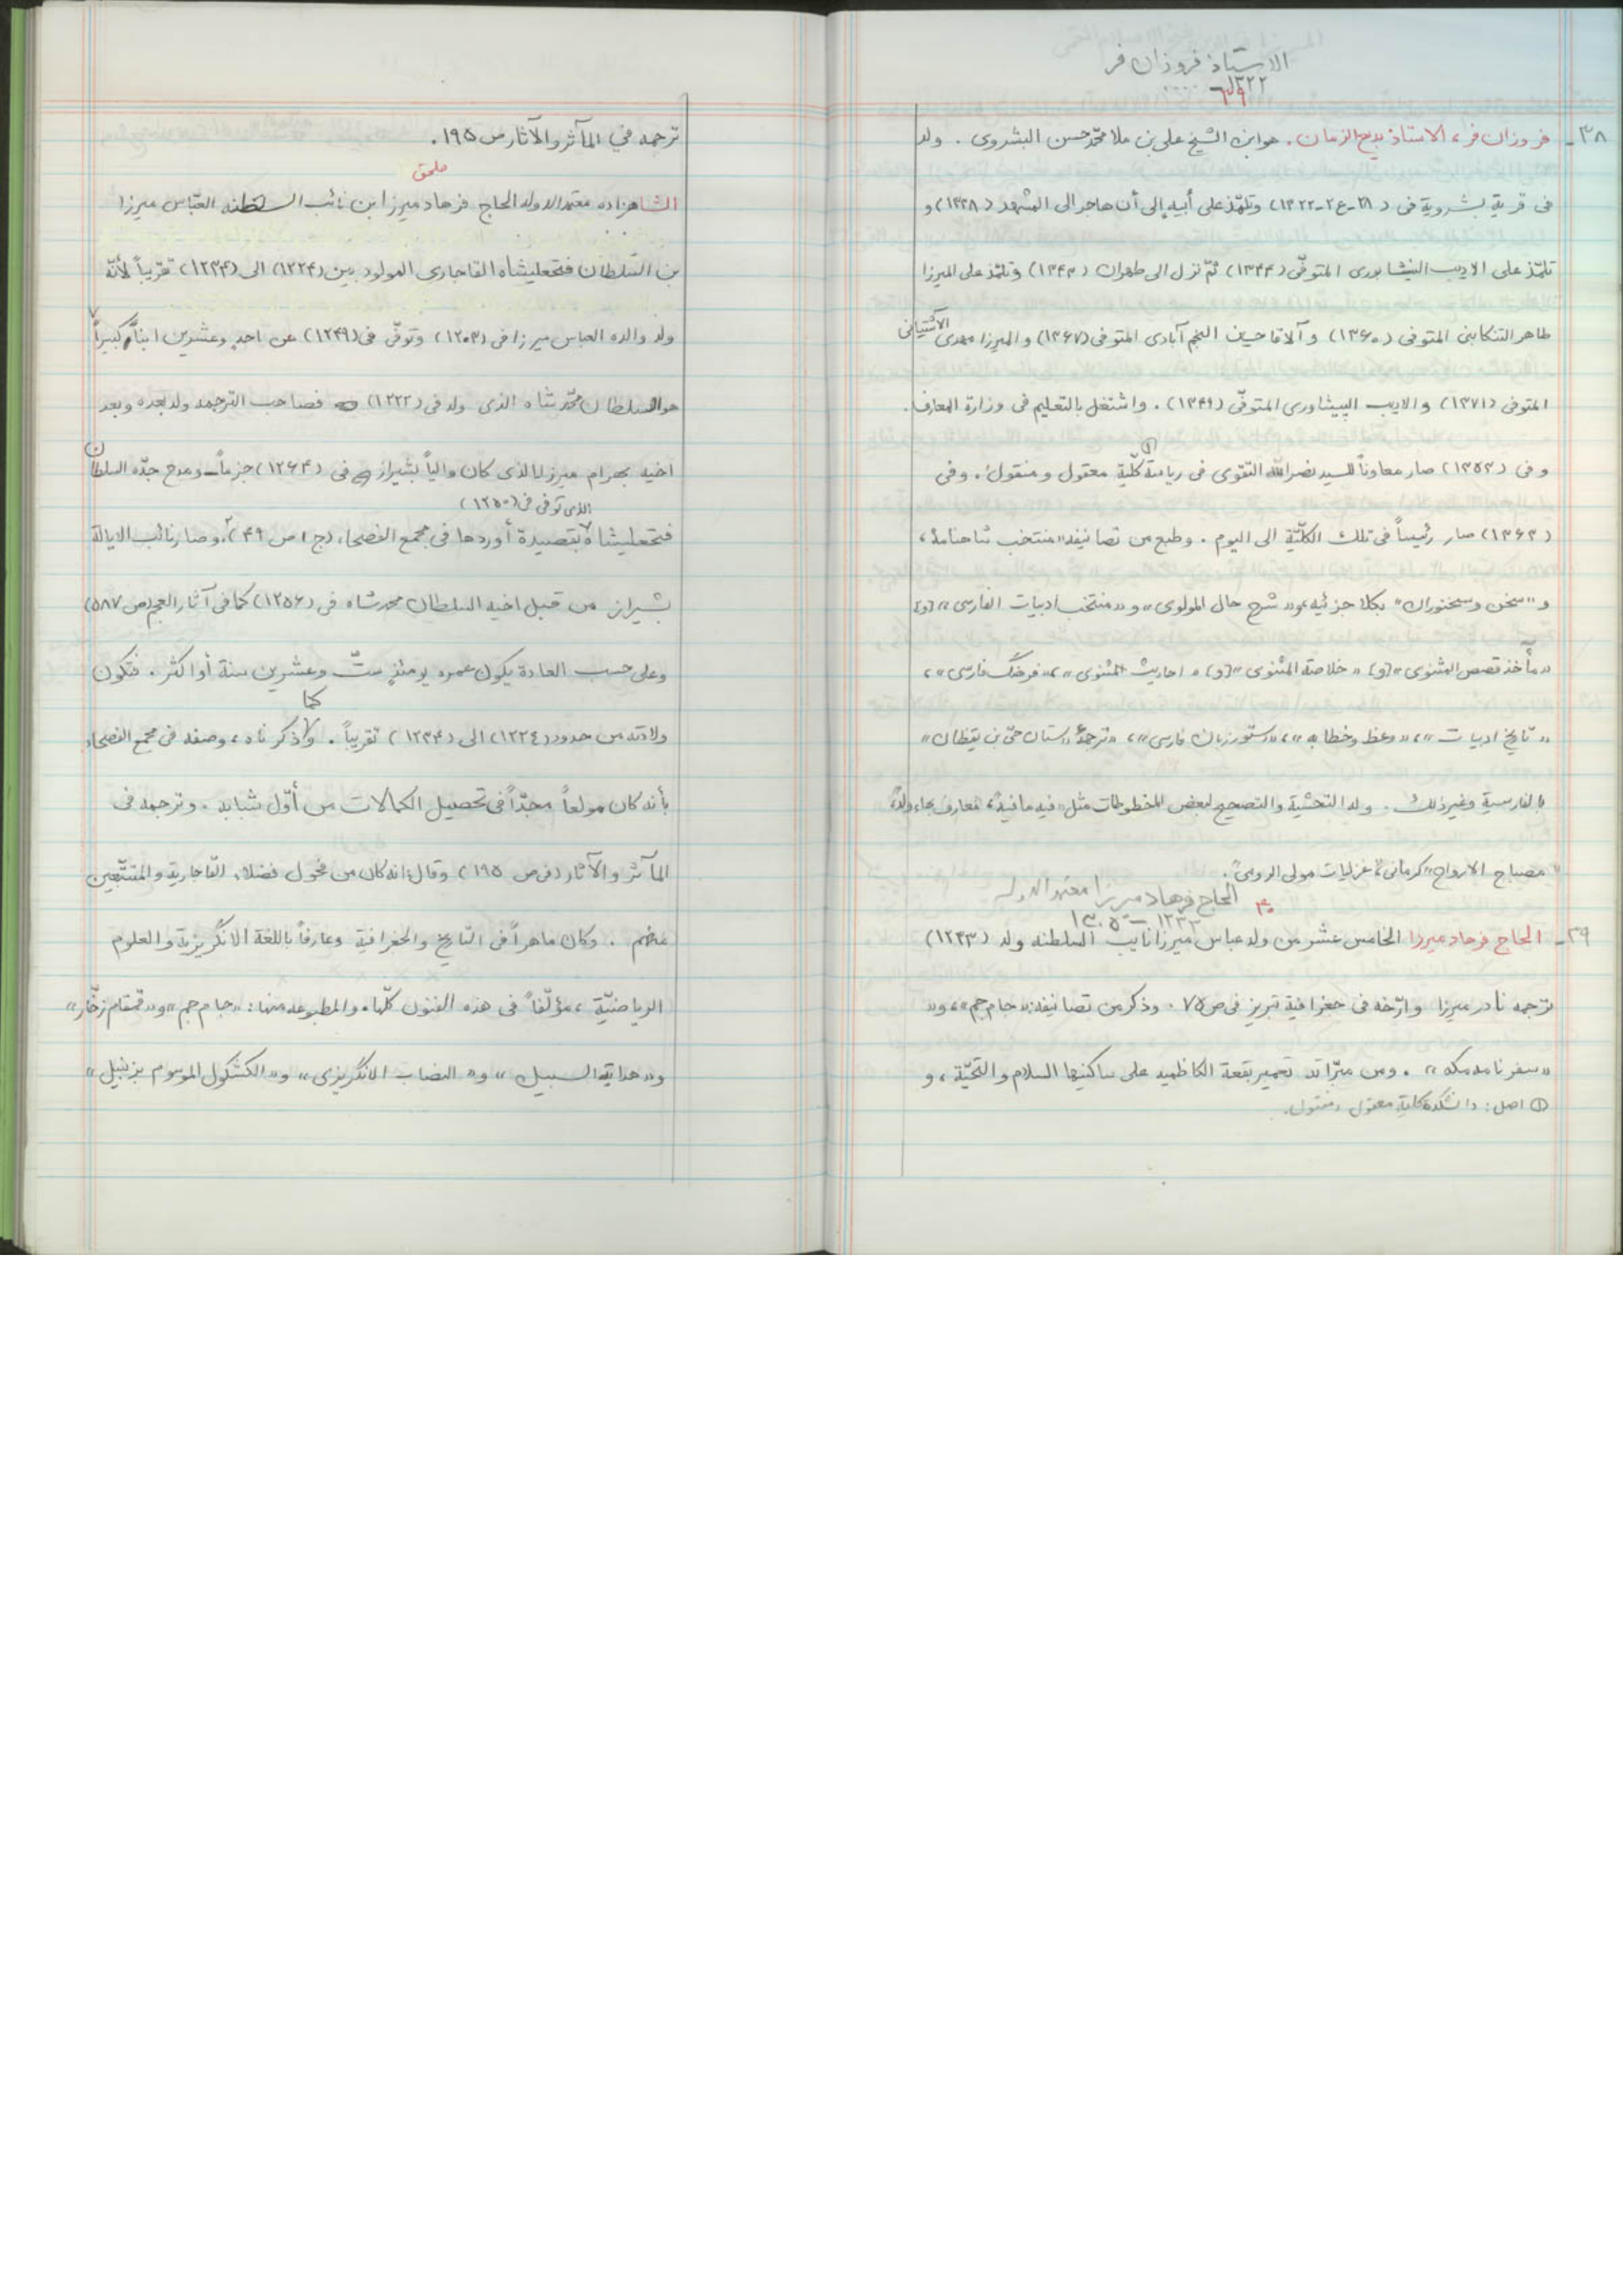 الاستاذ فروزان فر
١٣٢٢
٣٨ـ فروزان فر، الاستاذ بديع الزمان. هو ابن الشيخ على بن ملا محمّد حسن البشروى . ولد
فى قرية بشروية فى (٢١-ع٢-١٣٢٢) وتلمّذ على أبيه إلى أن هاجر الى المشهد (١٣٣٨) و
تلمّذ على الاديب النيشابورى المتوفّى (١٣٤٤) ثمّ نزل الى طهران (١٣٤٣) وتلمّذ على الميرزا
طاهر التنكابنى المتوفى (١٣٦٠) و آلاقا حسين النجم آبادى المتوفى (١٣٦٧) و الميرزا مهدى الآشتيانى
المتوفى (١٣٧١) و الاديب الپيشاورى المتوفّى (١٣٤٩) . واشتغل بالتعليم فى وزارة المعارف.
و فى (١٣٥٣) صار معاوناً للسيد نصرالله التقوى فى رياسة كلّية معقول و منقول . وفى
(١٣٦٣) صار رئيساً فى تلك الكلّيّة الى اليوم . وطبع من تصانيفه «منتخب شاهنامه»،
و «سخن وسخنوران» بكلا جزئيه، و «شرح حال المولوى» و «منتخب ادبيات الفارسى» [و]
«مأخذ قصص المثنوى» [و] «خلاصة المثنوى» [و] «احاديث المثنوى»، «فرهنگ فارسى»،
«تاريخ ادبيات»، «وعظ وخطابه»، «دستور زبان فارسى»، «ترجمۀ داستان حىّ بن يقظان»
بالفارسية وغير ذلك . وله التحشية والتصحيح لبعض المخطوطات مثل «فيه مافيه»، معارف بهاء ولد،
«مصباح الارواح» كرمانى، «غزليات مولى الرومى».
٤٠ الحاج فرهاد ميرزا معتمد الدوله
١٢٣٣ – ١٣٠٥
٣٩ـ الحاج فرهاد ميرزا الخامس عشر من ولد عباس ميرزا نايب السلطنه ولد (١٢٣٣)
ترجمه نادر ميرزا وارّخه فى جغرافية تبريز فى ص ٧٥ . وذكر من تصانيفه: «جام جم»، و «
«سفر نامه مكه» . ومن مبرّاته تعمير بقعة الكاظميه على ساكنيها السلام والتحيّة، و
① اصل: دانشكده كلية معقول و منقول.
ترجمه في المآثر والآثار ص ١٩٥ .
ملحق
الشاهزاده معتمد الدوله الحاج فرهاد ميرزا ابن نائب السلطنه العبّاس ميرزا
بن السّلطان فتحعليشاه القاجارى المولود بين (١٢٢٤) الى (١٢٣٤) تقريباً لأنّه
ولد والده العباس ميرزا فى (١٢٠٣) وتوفّى فى (١٢٤٩) عن احد وعشرين ابناً كبيراً
هو السلطان محمّد شاه الذى ولد فى (١٢٢٢) فصاحب الترجمه ولد بعده وبعد
اخيه بهرام ميرزا الذى كان والياً بشيراز فى (١٢٦٤) جزماً ـ ومدح جدّه السلطان
الذى توفى فى (١٢٥٠)
فتحعليشاه بقصيدة أوردها فى مجمع الفصحاء (ج ١ ص ٤٩)، وصار نائب الايالة
بشيراز من قبل اخيه السلطان محمد شاه فى (١٢٥٦) كما فى آثار العجم (ص ٥٨٧)
وعلى حسب العادة يكون عمره يومئذٍ ستّ وعشرين سنة أو اكثر . فتكون
ولادته من حدود (١٢٢٤) الى (١٢٣٤) تقريباً . كما ذكرناه، وصفه فى مجمع الفصحاء
بأنه كان مولعاً مجدّاً فى تحصيل الكمالات من أوّل شبابه . وترجمه فى
المآثر والآثار (فى ص ١٩٥) وقال: انه كان من فحول فضلاء القاجارية والمتتبّعين
منهم . وكان ماهراً فى التاريخ والجغرافية وعارفاً باللغة الانگريزية والعلوم
الرياضيّة، مؤلّفاً فى هذه الفنون كلّها. والمطبوعه منها: «جام جم» و «قمقام زخّار»
و «هداية السبيل» و «النصاب الانگريزى» و «الكشكول الموسوم بزنبيل»